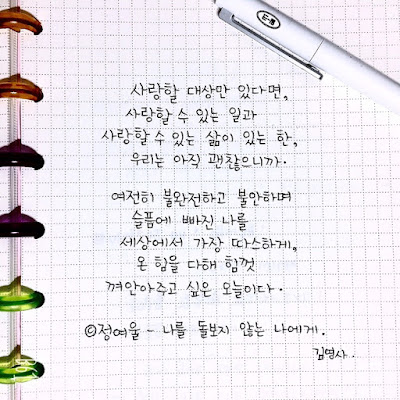 사랑할 대상만 있다면,
사랑할 수 있는 일과
사랑할 수 있는 삶이 있는 한,
우리는 아직 괜찮으니까.
여전히 불완전하고 불안하며
슬픔에 빠진 나를
세상에서 가장 따스하게,
온 힘을 다해 힘껏
껴안아주고 싶은 오늘이다.
©정여울 - 나를 돌보지 않는 나에게.